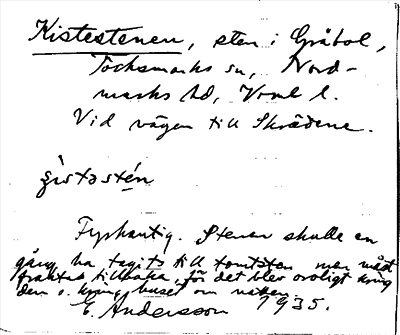 Kistestenen, sten i Gråbol,
Töcksmarks sn, Nord-
marks hd, Vrml l.
Vid vägen till Skrädene.
Fyrkantig. Stenen skulle en
gång ha tagits till tomtsten men måst
fraktas tillbaka, för det blev oroligt kring
den o. kring huset om natten.
E. Andersson 1935.